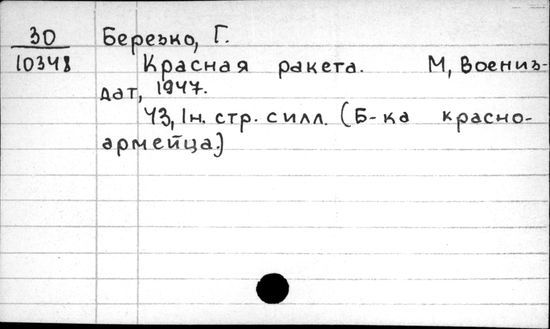 30 Березко, Г.
10348 Красная ракета. М, Воениз-
дат, 1947.
43, 1н. стр. с илл. (Б-ка красно-
армейца.)